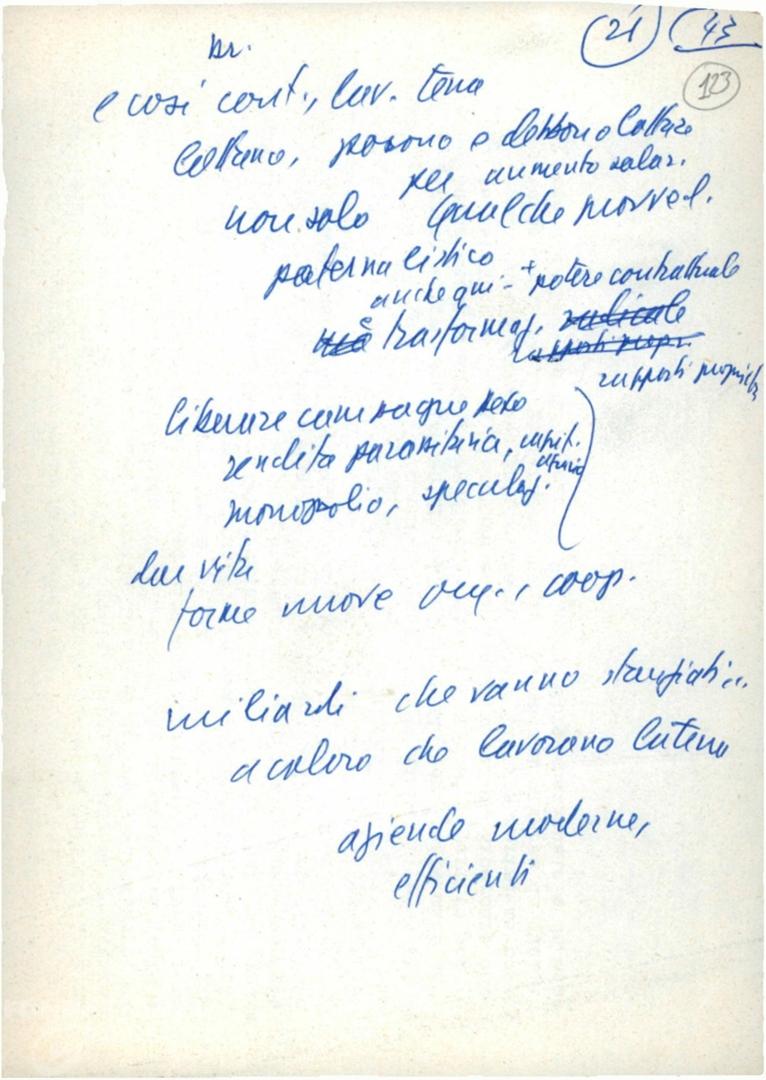 21 43
123
br.
e così cont., lav. terra
lottano, possono e debbono lottare
per aumento salar.
non solo qualche provved.
paternalistico
anche qui - + potere contrattuale
ma è trasformaz. radicale
rapporti propr.
rapporti proprietà
liberare campagne peso
rendita parassitaria, capit.
monopolio, speculaz.
dar vita
forme nuove org., coop.
miliardi che vanno stanziati...
a coloro che lavorano la terra
aziende moderne,
efficienti